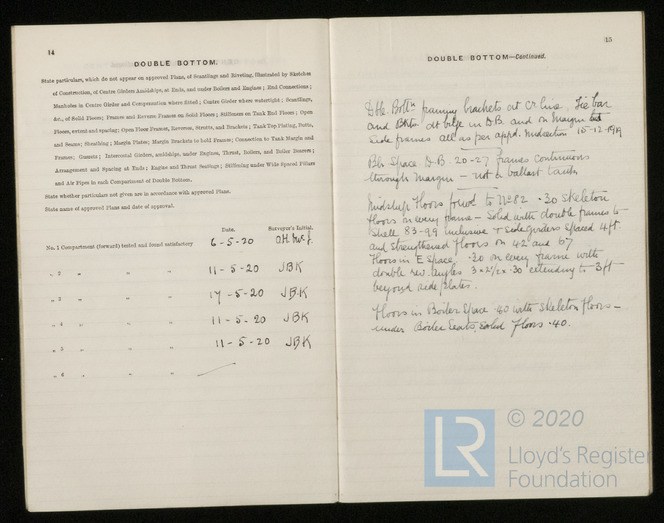 14
DOUBLE BOTTOM.
State particulars, which do not appear on approved Plans, of Scantlings and Riveting, illustrated by Sketches
of Construction, of Centre Girders Amidships, at Ends, and under Boilers and Engines; End Connections;
Manholes in Centre Girder and Compensation where fitted; Centre Girder where watertight; Scantlings,
&c., of Solid Floors; Frames and Reverse Frames on Solid Floors; Stiffeners on Tank End Floors; Open
Floors, extent and spacing; Open Floor Frames, Reverses, Struts, and Brackets; Tank Top Plating, Butts,
and Seams; Sheathing; Margin Plates; Margin Brackets to hold Frames; Connection to Tank Margin and
Frames; Gussets; Intercostal Girders, amidships, under Engines, Thrust, Boilers, and Boiler Bearers;
Arrangement and Spacing at Ends; Engine and Thrust Seatings; Stiffening under Wide Spaced Pillars
and Air Pipes in each Compartment of Double Bottom.
State whether particulars not given are in accordance with approved Plans.
State name of approved Plans and date of approval.
Date. Surveyor's Initial.
No. 1 Compartment (forward) tested and found satisfactory 6-5-20
„ 2 „ „ „ 11-5-20 JBK
„ 3 „ „ „ 17-5-20 JBK
„ 4 „ „ „ 11-5-20 JBK
„ 5 „ „ „ 11-5-20 JBK
„ 6 „ „ „
15
DOUBLE BOTTOM—Continued.
Dble Bottm framing brackets at Cr line. Tie bar
and Bkts at bilge in D.B. and on Margin
side frames all as per appd. Midsection 15-12-1919
Blr Space D.B. 20-27 frames continuous
through Margin — not a ballast tank
Midship Floors forwd to No 82 .30 Skeleton
Floors on every frame — Solid with double frames to
Shell 83-99 inclusive & Side girders spaced 4ft
and strengthened Floors on 42 and 67
Floors in E space .30 on every frame with
double rev. angles 3 x 2½ x .30 extending to 3ft
beyond side plates.
Floors in Boiler Space .40 with Skeleton Floors —
under Boiler Seats, solid Floors .40.
© 2020
LR
Lloyd's Register
Foundation